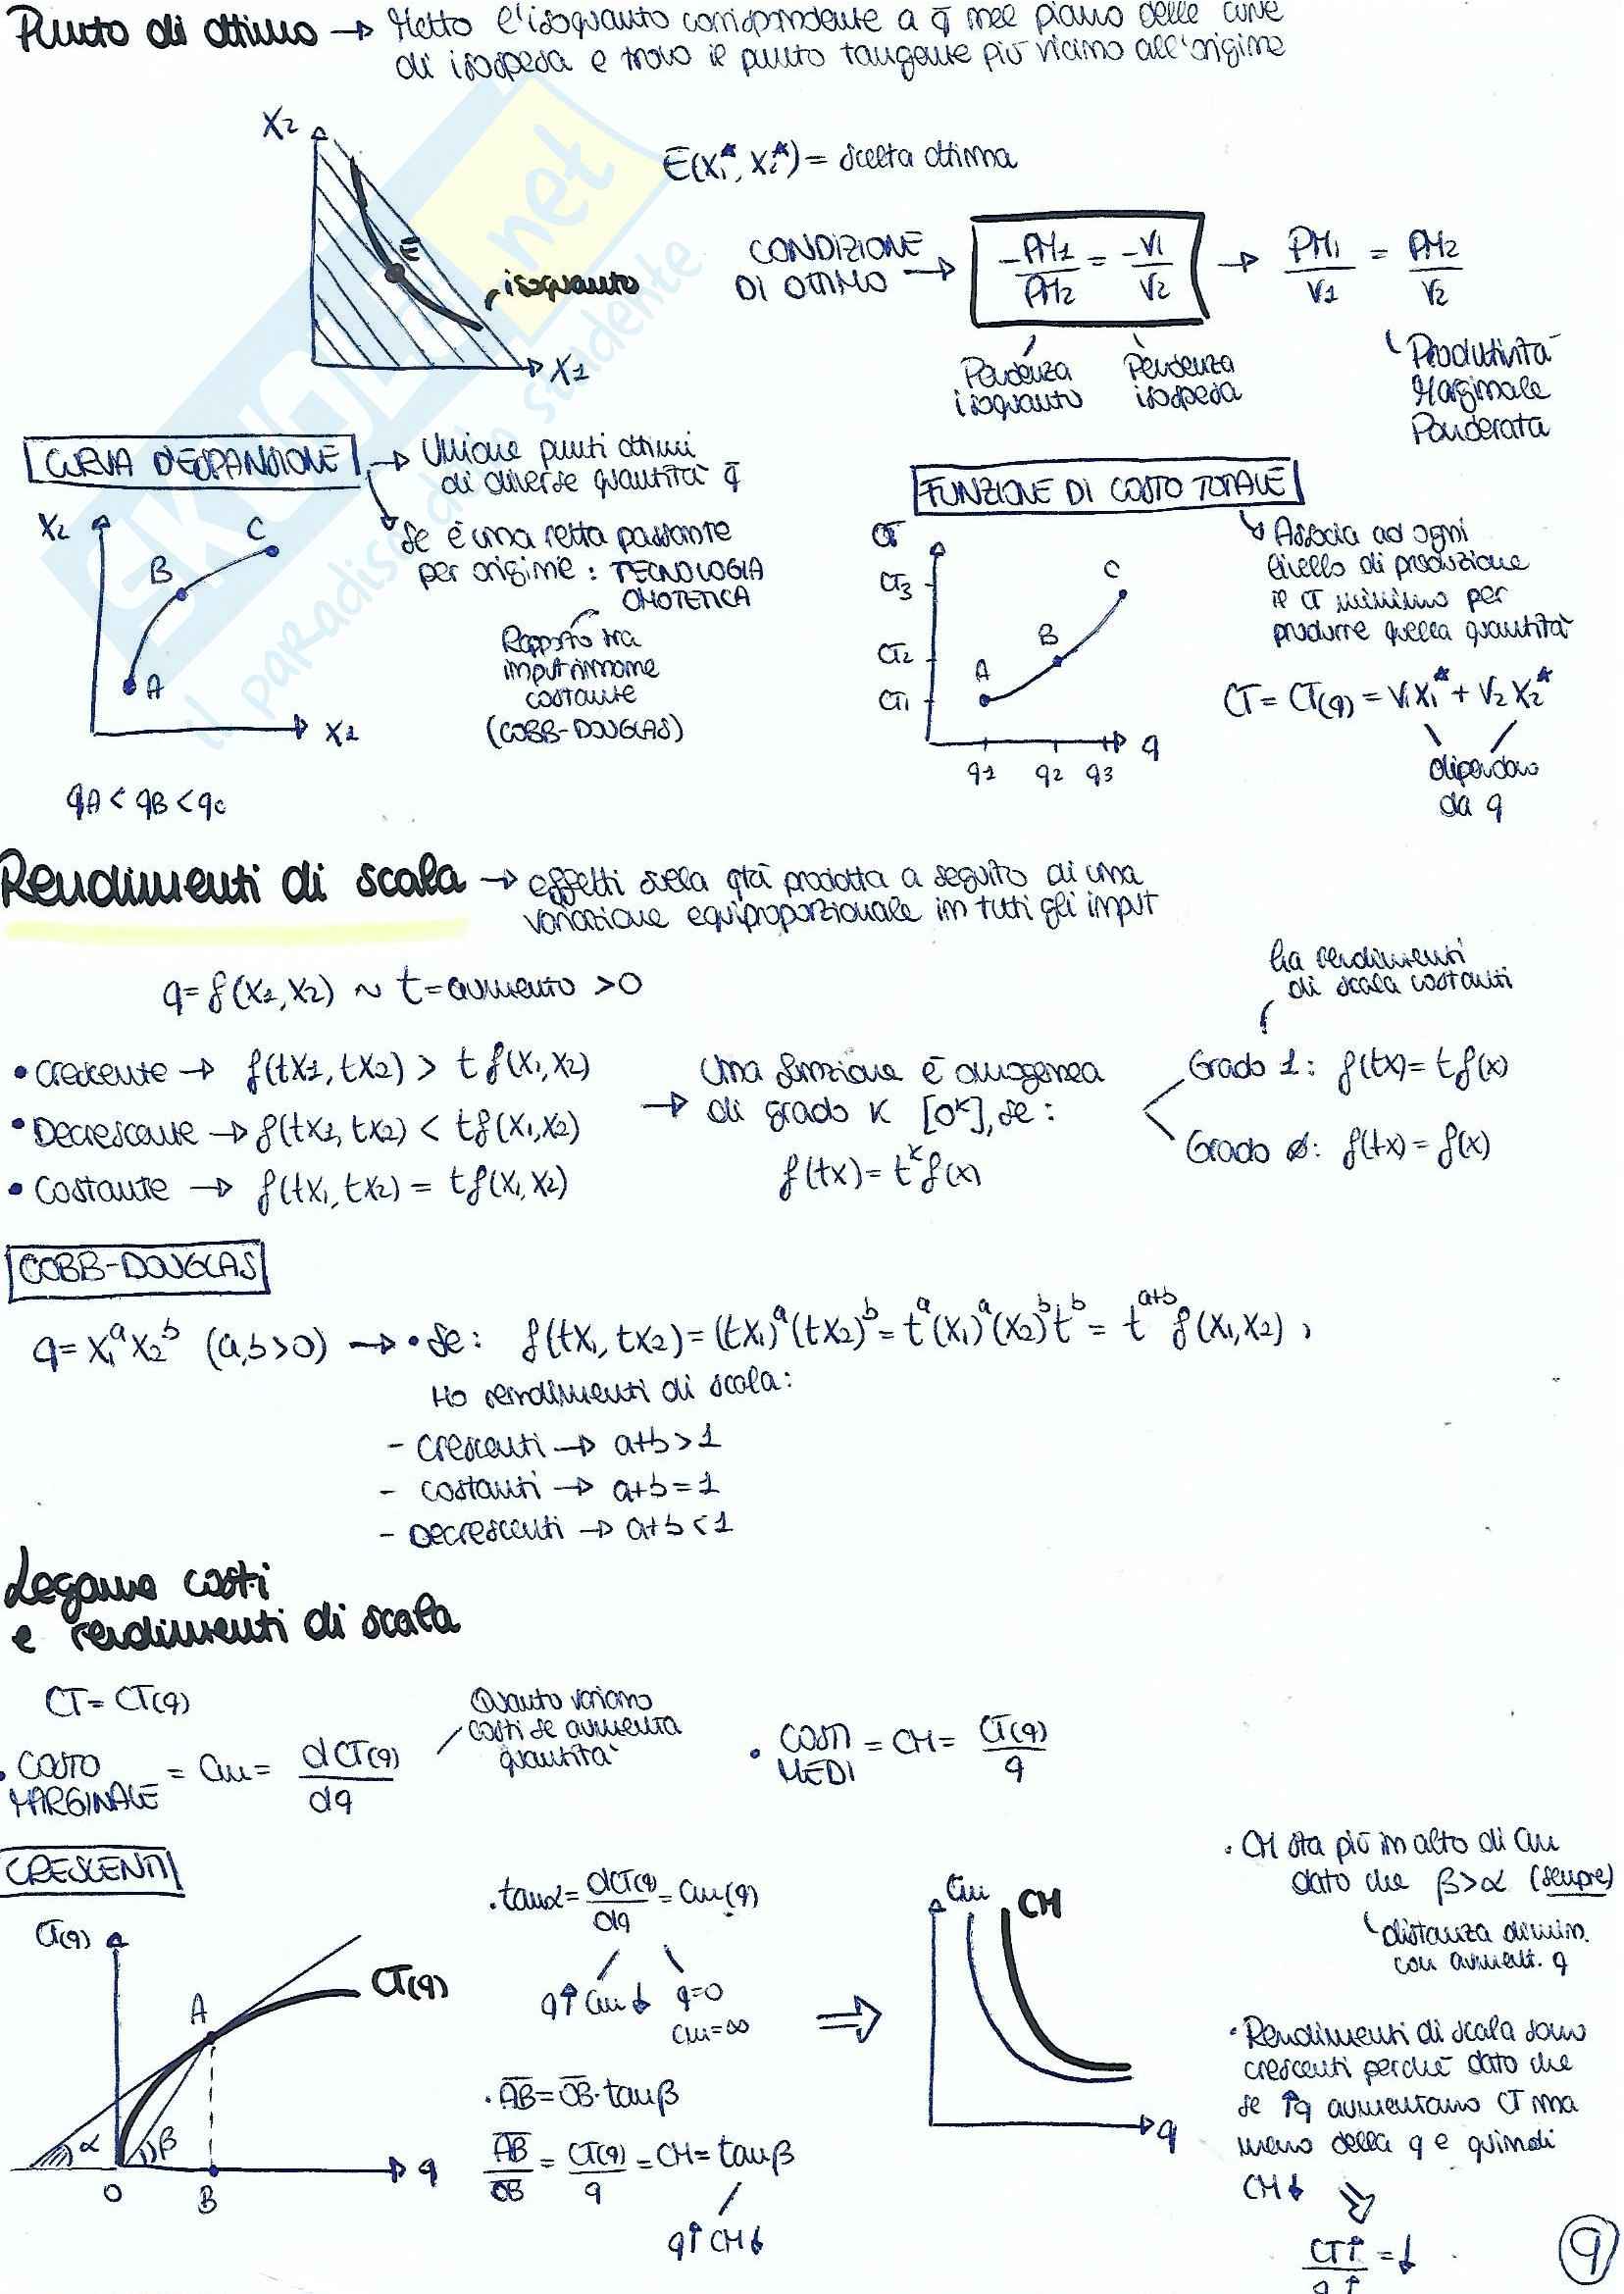 Punto di ottimo → Metto l'isoquanto corrispondente a q̄ nel piano delle curve
di isospesa e trovo il punto tangente più vicino all'origine
X2
E(X1*, X2*) = scelta ottima
E
isoquanto
X1
CONDIZIONE DI OTTIMO → -PM1/PM2 = -V1/V2 → PM1/V1 = PM2/V2
Pendenza isoquanto
Pendenza isospesa
Produttività Marginale Ponderata
CURVA D'ESPANSIONE → Unione punti ottimi
di diverse quantità q̄
Se è una retta passante
per origine: TECNOLOGIA
OMOTETICA
Rapporto tra
input rimane
costante
(COBB-DOUGLAS)
X2
A
B
C
X1
qA < qB < qC
FUNZIONE DI COSTO TOTALE
Associa ad ogni
livello di produzione
il CT minimo per
produrre quella quantità
CT
CT3
CT2
CT1
A
B
C
q1 q2 q3
q
CT = CT(q) = V1X1* + V2X2*
dipendono
da q
Rendimenti di scala → effetti sulla qtà prodotta a seguito di una
variazione equiproporzionale in tutti gli input
q = f(X1, X2) ~ t = aumento > 0
• Crescente → f(tX1, tX2) > t f(X1, X2)
• Decrescente → f(tX1, tX2) < t f(X1, X2)
• Costante → f(tX1, tX2) = t f(X1, X2)
→ Una funzione è omogenea
di grado K [O^K], se:
f(tx) = t^K f(x)
ha rendimenti
di scala costanti
Grado 1: f(tx) = t f(x)
Grado Ø: f(tx) = f(x)
COBB-DOUGLAS
q = X1^a X2^b (a,b>0) → • Se: f(tX1, tX2) = (tX1)^a (tX2)^b = t^a (X1)^a (X2)^b t^b = t^(a+b) f(X1, X2),
Ho rendimenti di scala:
- crescenti → a+b>1
- costanti → a+b=1
- Decrescenti → a+b<1
Legame costi
e rendimenti di scala
CT = CT(q)
• COSTO MARGINALE = Cm = dCT(q)/dq
Quanto variano
costi se aumenta
quantità
• COSTI MEDI = CM = CT(q)/q
CRESCENTI
CT(q)
A
CT(q)
α
β
O
B
q
• tanα = dCT(q)/dq = Cm(q)
q↑ Cm↓
q=0
Cm=∞
• AB = OB · tanβ
AB/OB = CT(q)/q = CM = tanβ
q↑ CM↓
⇒
Cm
CM
q
• CM sta più in alto di Cm
dato che β>α (sempre)
distanza dimin.
con aument. q
• Rendimenti di scala sono
crescenti perché dato che
se ↑q aumentano CT ma
meno della q e quindi
CM↓
CT↑/q↑ = ↓
9
SKUOLA.net
il paradiso dello studente